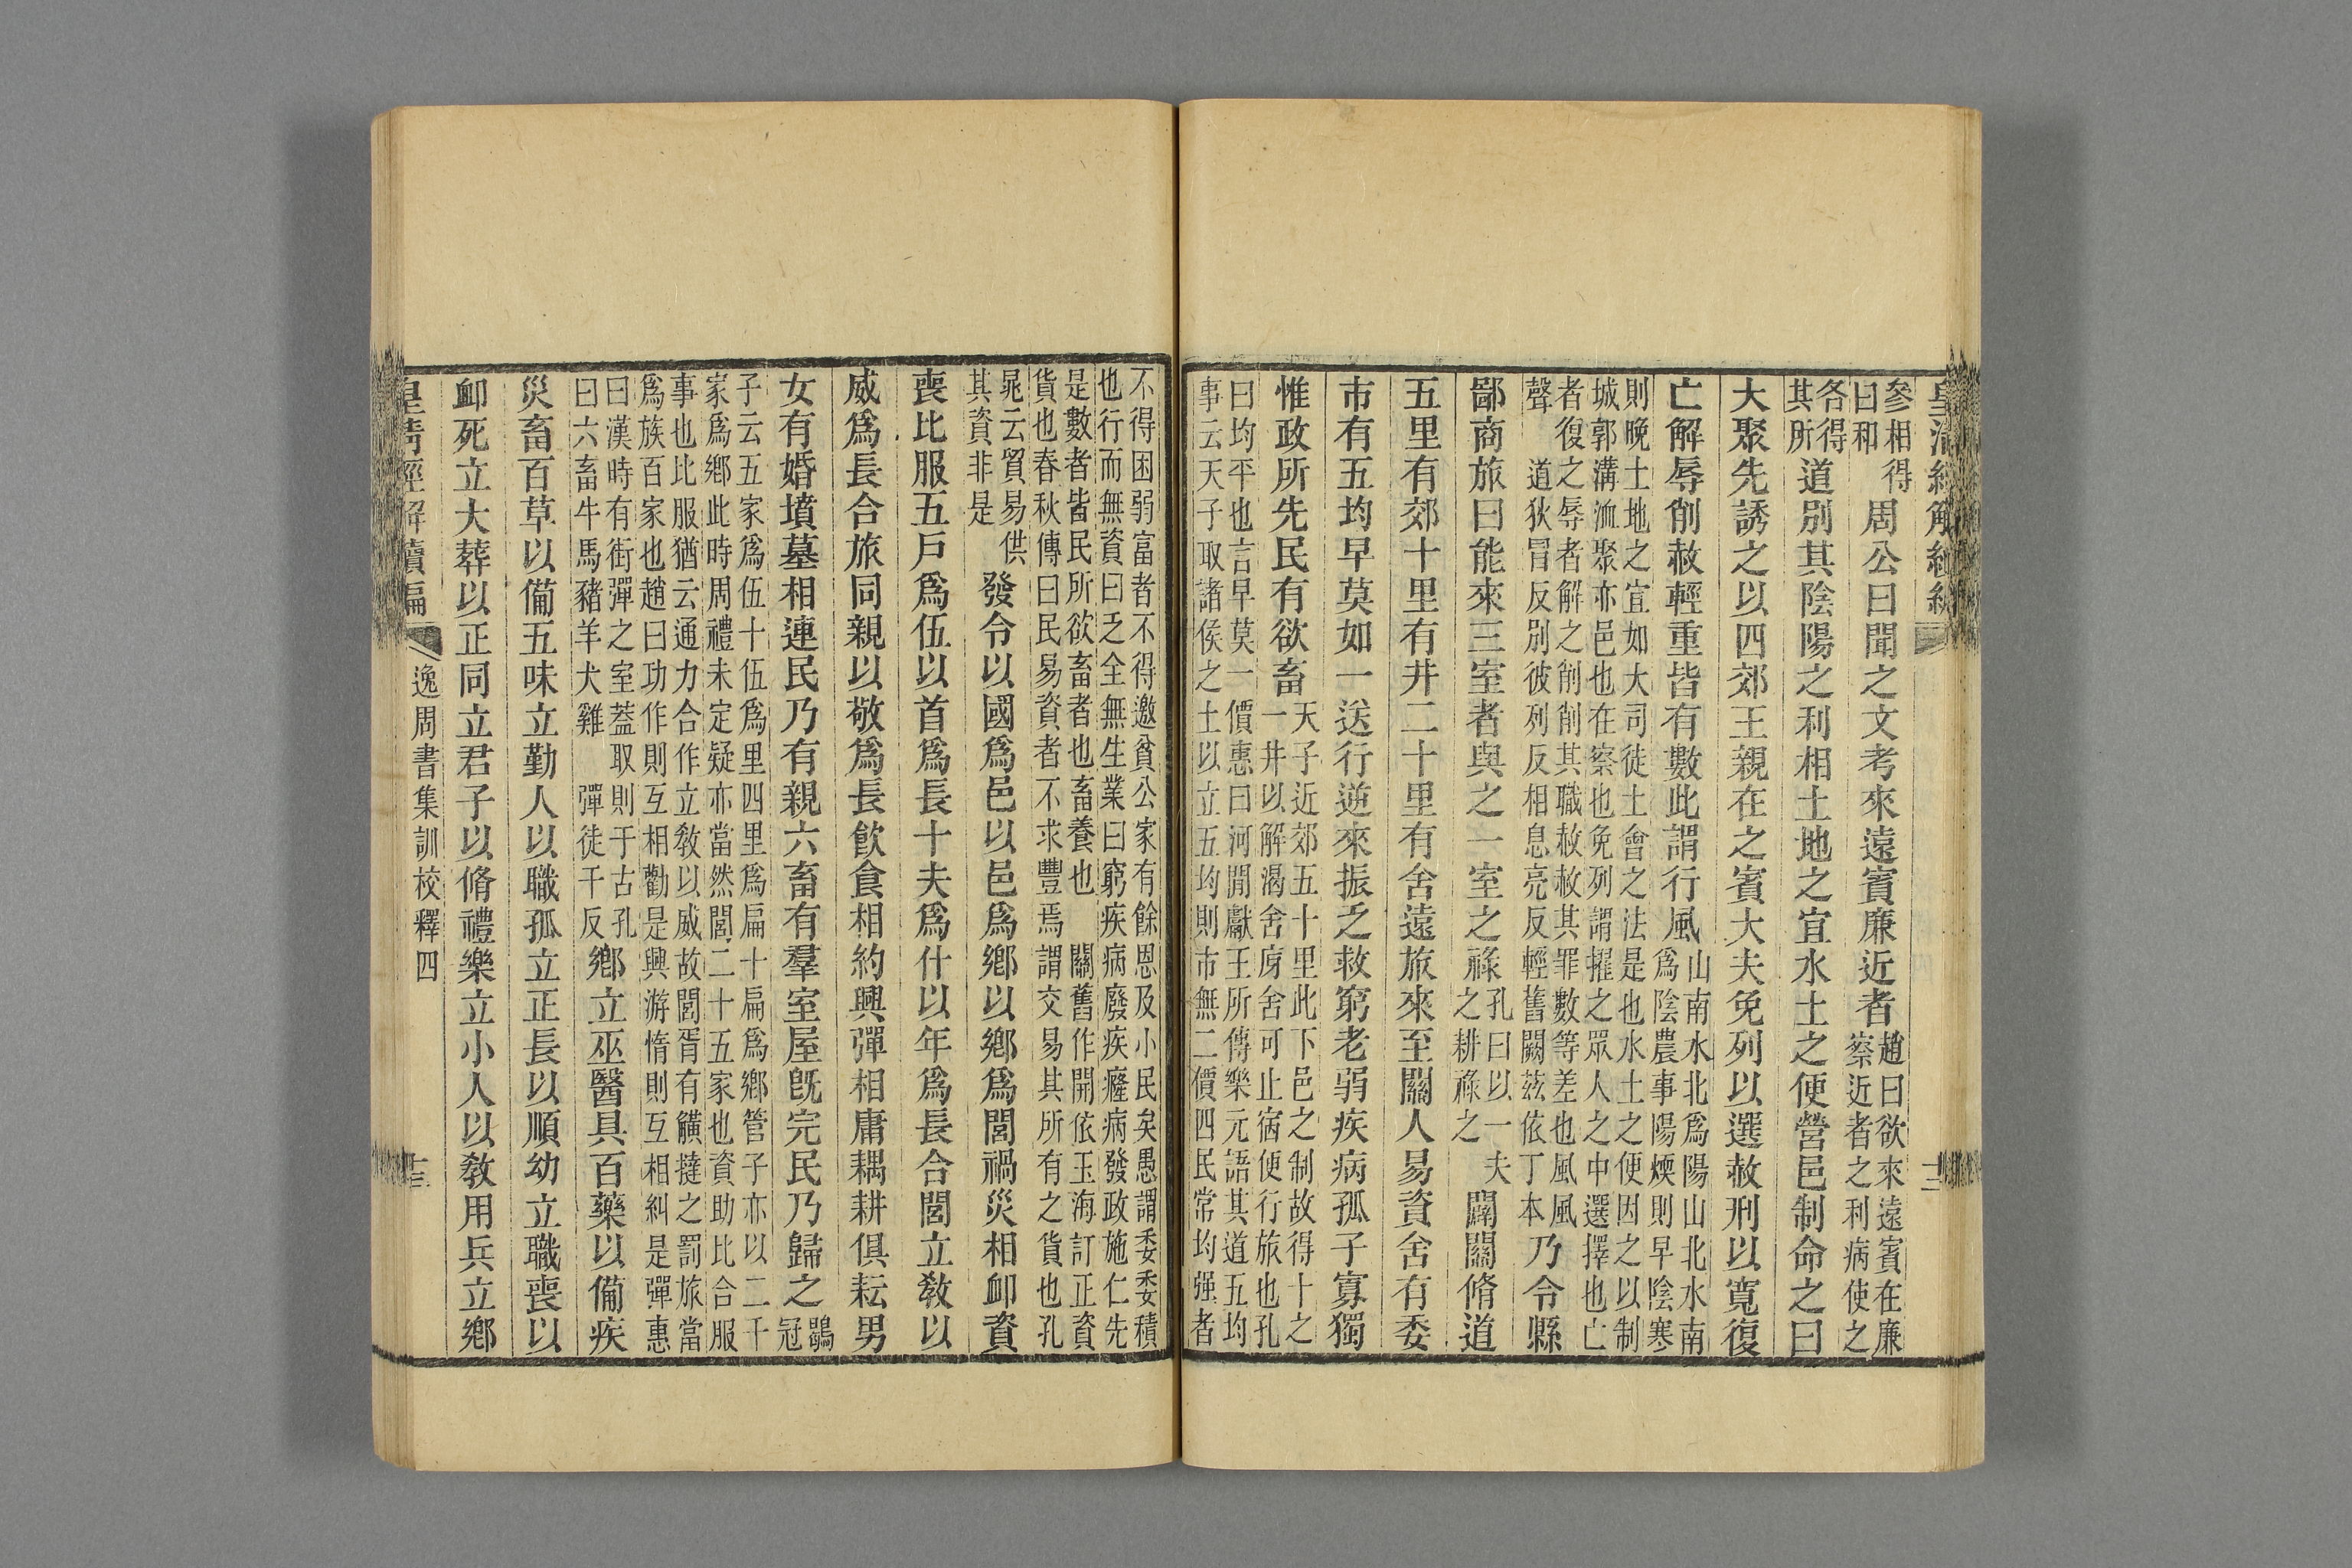 皇清經解續編
參相得曰和周公曰聞之文考來遠賓廉近者趙曰欲來遠賓在廉察近者之利病使之
各得其所道別其陰陽之利相土地之宜水土之便營邑制命之曰
大聚先誘之以四郊王親在之賓大夫免列以選赦刑以寬復
亡解辱削赦輕重皆有數此謂行風山南水北爲陽山北水南爲陰農事陽煗則早陰寒
則晚土地之宜如大司徒土會之法是也水土之便因之以制
城郭溝洫聚亦邑也在察也免列謂擢之眾人之中選擇也亡
者復之辱者解之削削其職赦赦其罪數等差也風風
聲 道狄冒反別彼列反相息亮反輕舊闕茲依丁本乃令縣
鄙商旅曰能來三室者與之一室之祿孔曰以一夫之耕祿之闢關脩道
五里有郊十里有井二十里有舍遠旅來至關人易資舍有委
市有五均早莫如一送行逆來振乏救窮老弱疾病孤子寡獨
惟政所先民有欲畜天子近郊五十里此下邑之制故得十之一井以解渴舍房舍可止宿便行旅也孔
曰均平也言早莫一價惠曰河閒獻王所傳樂元語其道五均
事云天子取諸侯之土以立五均則市無二價四民常均强者
不得困弱富者不得邀貧公家有餘恩及小民矣愚謂委委積
也行而無資曰乏全無生業曰窮疾病廢疾癃病發政施仁先
是數者皆民所欲畜者也畜養也 關舊作開依玉海訂正資
貨也春秋傳曰民易資者不求豐焉謂交易其所有之貨也孔
晁云貿易供其資非是發令以國爲邑以邑爲鄉以鄉爲閭禍災相卹資
喪比服五戶爲伍以首爲長十夫爲什以年爲長合閭立敎以
威爲長合旅同親以敬爲長飮食相約興彈相庸耦耕俱耘男
女有婚墳墓相連民乃有親六畜有羣室屋旣完民乃歸之鶡冠
子云五家爲伍十伍爲里四里爲扁十扁爲鄉管子亦以二千
家爲鄉此時周禮未定疑亦當然閭二十五家也資助比合服
事也比服猶云通力合作立敎以威故閭胥有觵撻之罰旅當
爲族百家也趙曰功作則互相勸是興游惰則互相糾是彈惠
曰漢時有街彈之室蓋取則于古孔
曰六畜牛馬豬羊犬雞 彈徒干反鄉立巫醫具百藥以僃疾
災畜百草以僃五味立勤人以職孤立正長以順幼立職喪以
卹死立大葬以正同立君子以脩禮樂立小人以敎用兵立鄉
皇清經解續編 逸周書集訓校釋四 十三